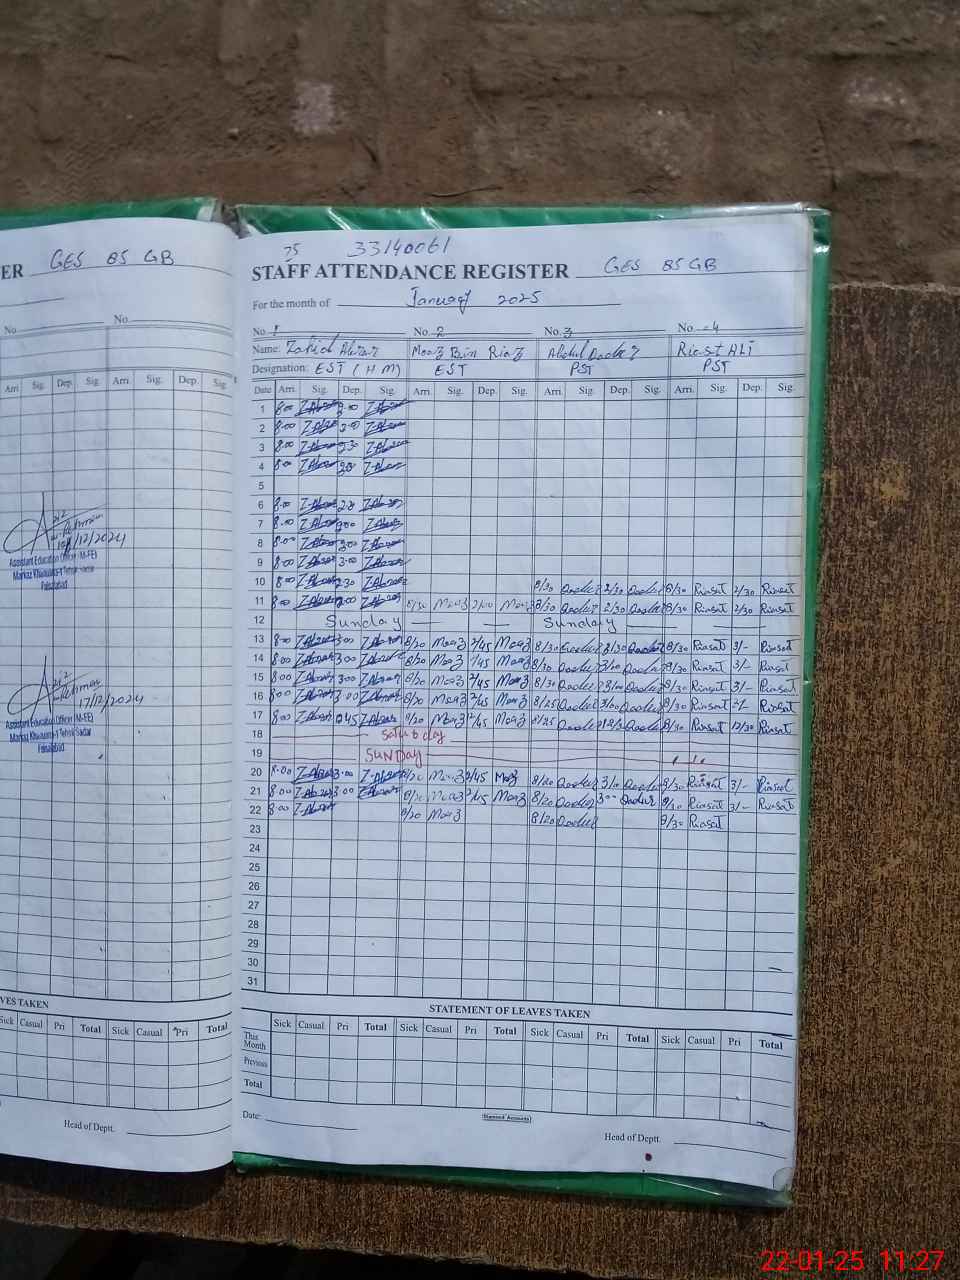 ER GES 85 GB
No.
No.
Arri. Sig. Dep. Sig. Arri. Sig. Dep. Sig.
17/12/2024
Assistant Education Officer (M-EE)
Faisalabad
17/12/2024
Assistant Education Officer (M-EE)
Faisalabad
VES TAKEN
Sick Casual Pri Total Sick Casual Pri Total
Head of Deptt.
75 33140061
STAFF ATTENDANCE REGISTER GES 85 GB
For the month of January 2025
No. 1 No. 2 No. 3 No. 4
Name: Zahid Abrar Moaz Bin Riaz Abdul Qadeer Riasat Ali
Designation: EST (HM) EST PST PST
Date Arri. Sig. Dep. Sig. Arri. Sig. Dep. Sig. Arri. Sig. Dep. Sig. Arri. Sig. Dep. Sig.
1 8:00 Z.Abrar 3:00 Z.Abrar
2 8:00 Z.Abrar 3:00 Z.Abrar
3 8:00 Z.Abrar Z.Abrar
4 8:00 Z.Abrar Z.Abrar
5
6 8:00 Z.Abrar Z.Abrar
7 8:00 Z.Abrar 3:00 Z.Abrar
8 8:00 Z.Abrar 3:00 Z.Abrar
9 8:00 Z.Abrar 3:00 Z.Abrar
10 8:00 Z.Abrar 2:30 Z.Abrar 8/30 Qadeer 2/30 Qadeer 8/30 Riasat 2/30 Riasat
11 8:00 Z.Abrar Z.Abrar 8/30 Moaz 2/00 Moaz 8/30 Qadeer 2/30 Qadeer 8/30 Riasat 2/30 Riasat
12 Sunday Sunday
13 8:00 Z.Abrar 3:00 Z.Abrar 8/20 Moaz 2/45 Moaz 8/30 Qadeer Qadeer 8/30 Riasat 3/- Riasat
14 8:00 Z.Abrar 3:00 Z.Abrar 8/20 Moaz 2/45 Moaz 8/30 Qadeer Qadeer 8/30 Riasat 3/- Riasat
15 8:00 Z.Abrar 3:00 Z.Abrar 8/20 Moaz 2/45 Moaz 8/30 Qadeer Qadeer 8/30 Riasat 3/- Riasat
16 8:00 Z.Abrar 3:00 Z.Abrar 8/20 Moaz 2/45 Moaz 8/25 Qadeer 3/00 Qadeer 8/30 Riasat Riasat
17 8:00 Z.Abrar Z.Abrar 8/20 Moaz Moaz 8/25 Qadeer Qadeer 8/30 Riasat 12/30 Riasat
18 Saturday
19 SUNDAY
20 8:00 Z.Abrar 3:00 Z.Abrar 8/20 Moaz 2/45 Moaz 8/20 Qadeer 3/10 Qadeer 8/30 Riasat 3/- Riasat
21 8:00 Z.Abrar 3:00 Z.Abrar 8/20 Moaz 2/45 Moaz 8/20 Qadeer 3:00 Qadeer Riasat 3/- Riasat
22 8:00 Z.Abrar 8/20 Moaz 8/20 Qadeer 8/30 Riasat
23
24
25
26
27
28
29
30
31
STATEMENT OF LEAVES TAKEN
Sick Casual Pri Total Sick Casual Pri Total Sick Casual Pri Total Sick Casual Pri Total
This Month
Previous
Total
Date:
Head of Deptt.
22-01-25 11:27